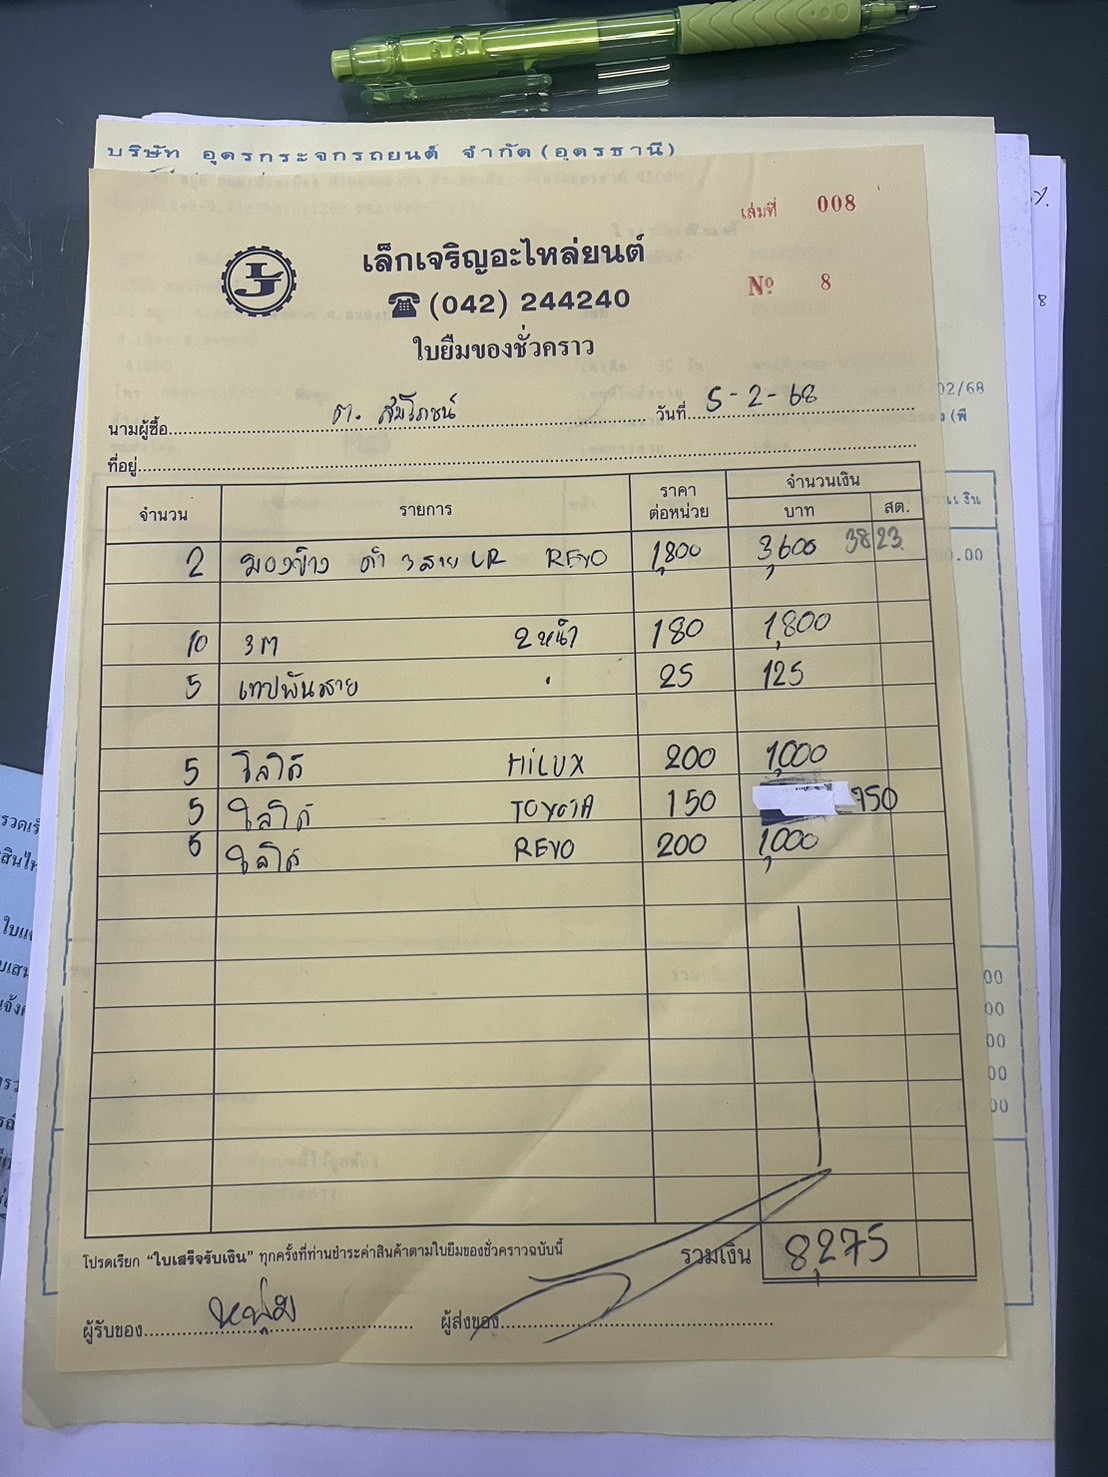 บริษัท อุดรกระจกรถยนต์ จำกัด(อุดรธานี)
เล่มที่ 008
เล็กเจริญอะไหล่ยนต์
Nº 8
☎ (042) 244240
ใบยืมของชั่วคราว
02/68
นามผู้ซื้อ วันที่ 5-2-68
ที่อยู่
จำนวน รายการ ราคาต่อหน่วย จำนวนเงิน บาท สต.
2 มองข้าง ดำ 3สาย LR REVO 1,800 3,600 3823
10 3M 2หน้า 180 1,800
5 เทปพันสาย 25 125
5 โลโก้ HILUX 200 1,000
5 โลโก้ TOYOTA 150 750
5 โลโก้ REVO 200 1,000
โปรดเรียก “ใบเสร็จรับเงิน” ทุกครั้งที่ท่านชำระค่าสินค้าตามใบยืมของชั่วคราวฉบับนี้ รวมเงิน 8,275
ผู้รับของ ผู้ส่งของ